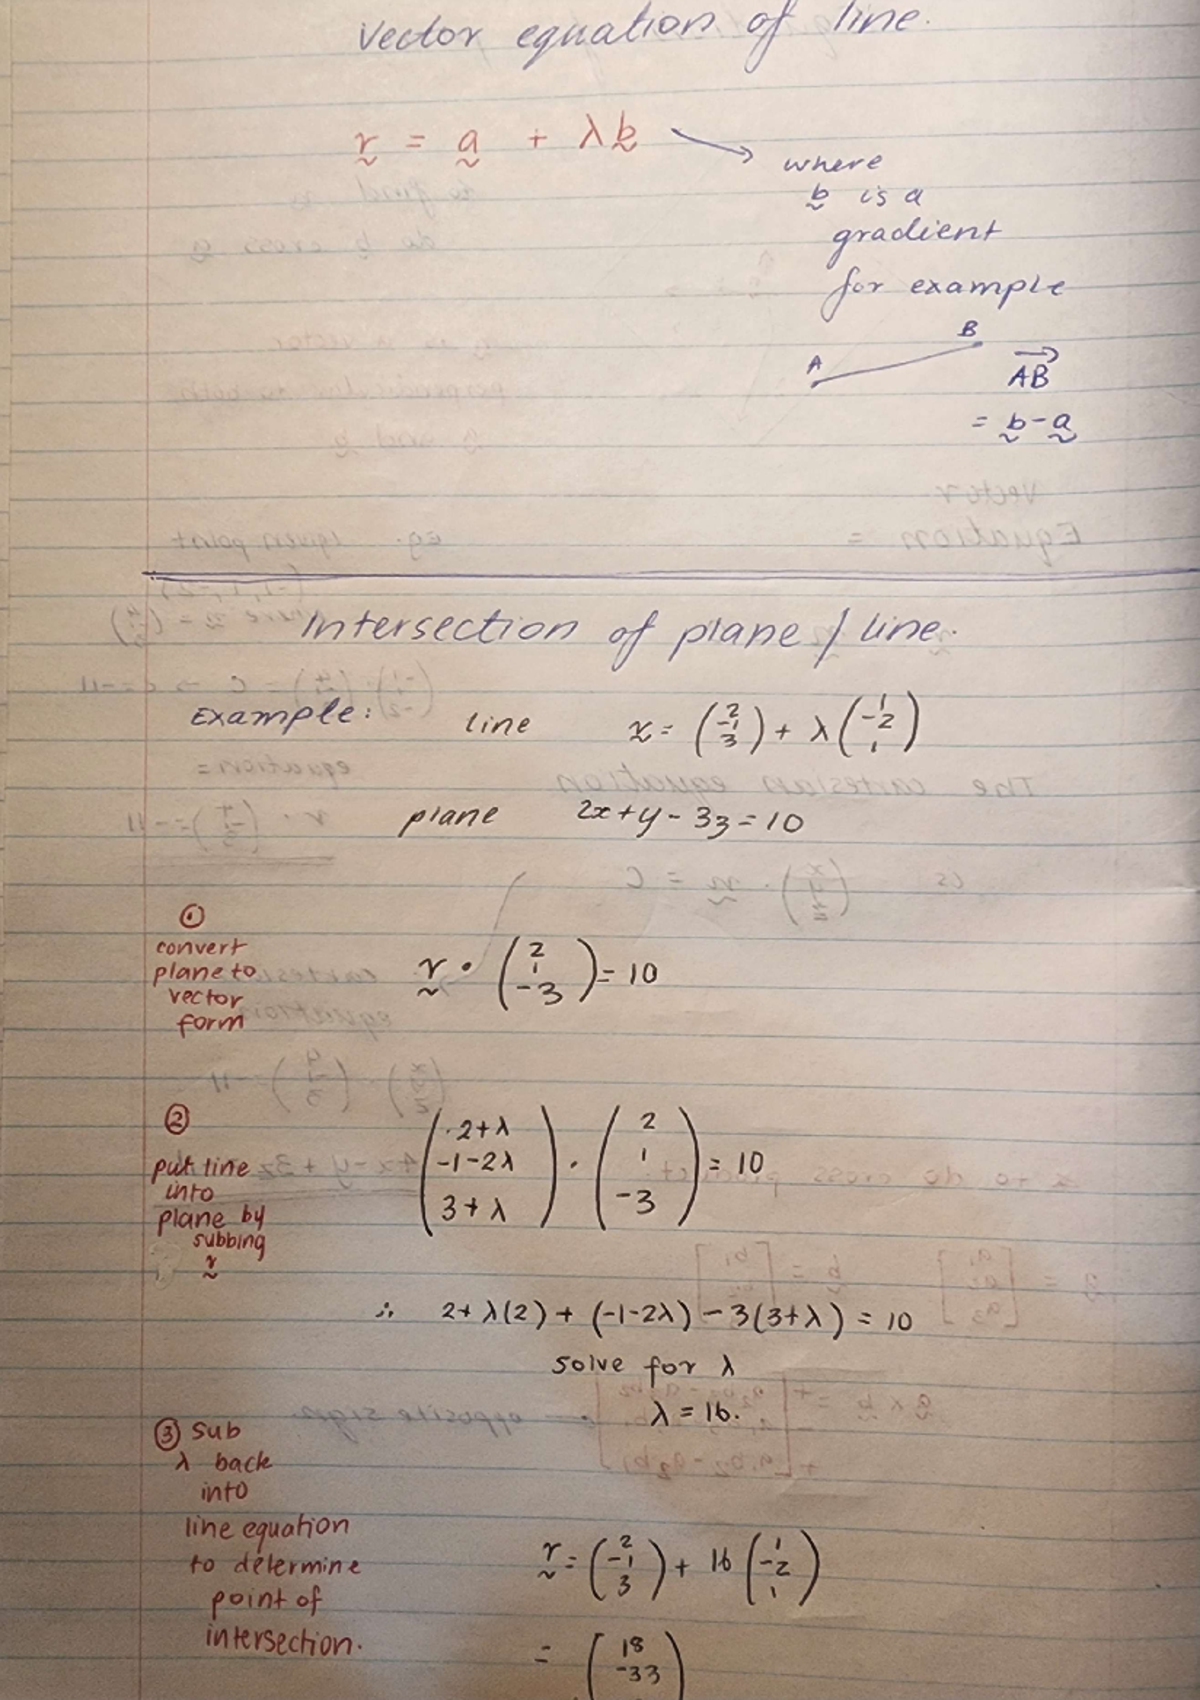 Vector equation of line.
r = a + λb
where
b is a
gradient
for example
A B
AB
= b - a
Intersection of plane / line.
Example: line r = (2 -1 3) + λ(1 -2 1)
plane 2x+y-3z=10
①
convert
plane to
vector
form
r • (2 1 -3) = 10
②
put line
into
plane by
subbing
r
(2+λ -1-2λ 3+λ) • (2 1 -3) = 10
∴ 2+λ(2) + (-1-2λ) - 3(3+λ) = 10
solve for λ
λ = 16.
③ sub
λ back
into
line equation
to determine
point of
intersection.
r = (2 -1 3) + 16 (1 -2 1)
= (18 -33